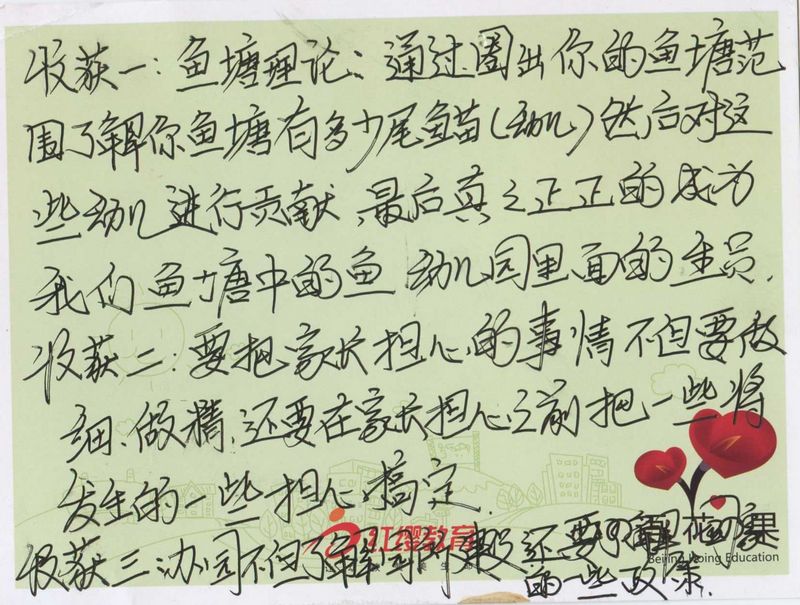 收获一:鱼塘理论:通过圈出你的鱼塘范
围了解你鱼塘有多少尾鱼苗(幼儿)然后对这
些幼儿进行贡献,最后真之正正的成为
我们鱼塘中的鱼 幼儿园里面的生员.
收获二:要把家长担心的事情不但要做
细、做精,还要在家长担心之前把一些将
发生的一些担心搞定.
红缨教育
Beijing Hoing Education
收获三:办园不但了解 还要了解国家
的一些政策.